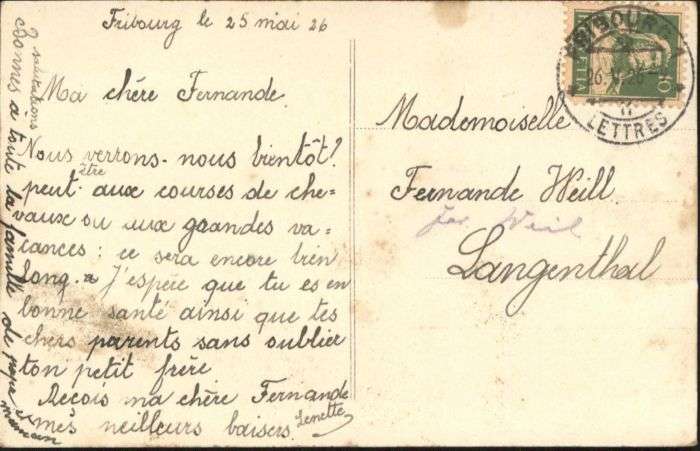 Fribourg le 25 mai 26
Ma chère Fernande.
Nous verrons-nous bientôt?
peut être aux courses de che-
vaux ou aux grandes va-
cances: ce sera encore bien
long. J'espère que tu es en
bonne santé ainsi que tes
chers parents sans oublier
ton petit frère
Reçois ma chère Fernande
mes neilleurs baisers.
Lenette
Bonnes salutations
à toute la famille de papa et
maman
Mademoiselle
Fernande Weill.
Weil
Langenthal
FRIBOURG
26.V.26
LETTRES
HELVETIA
10